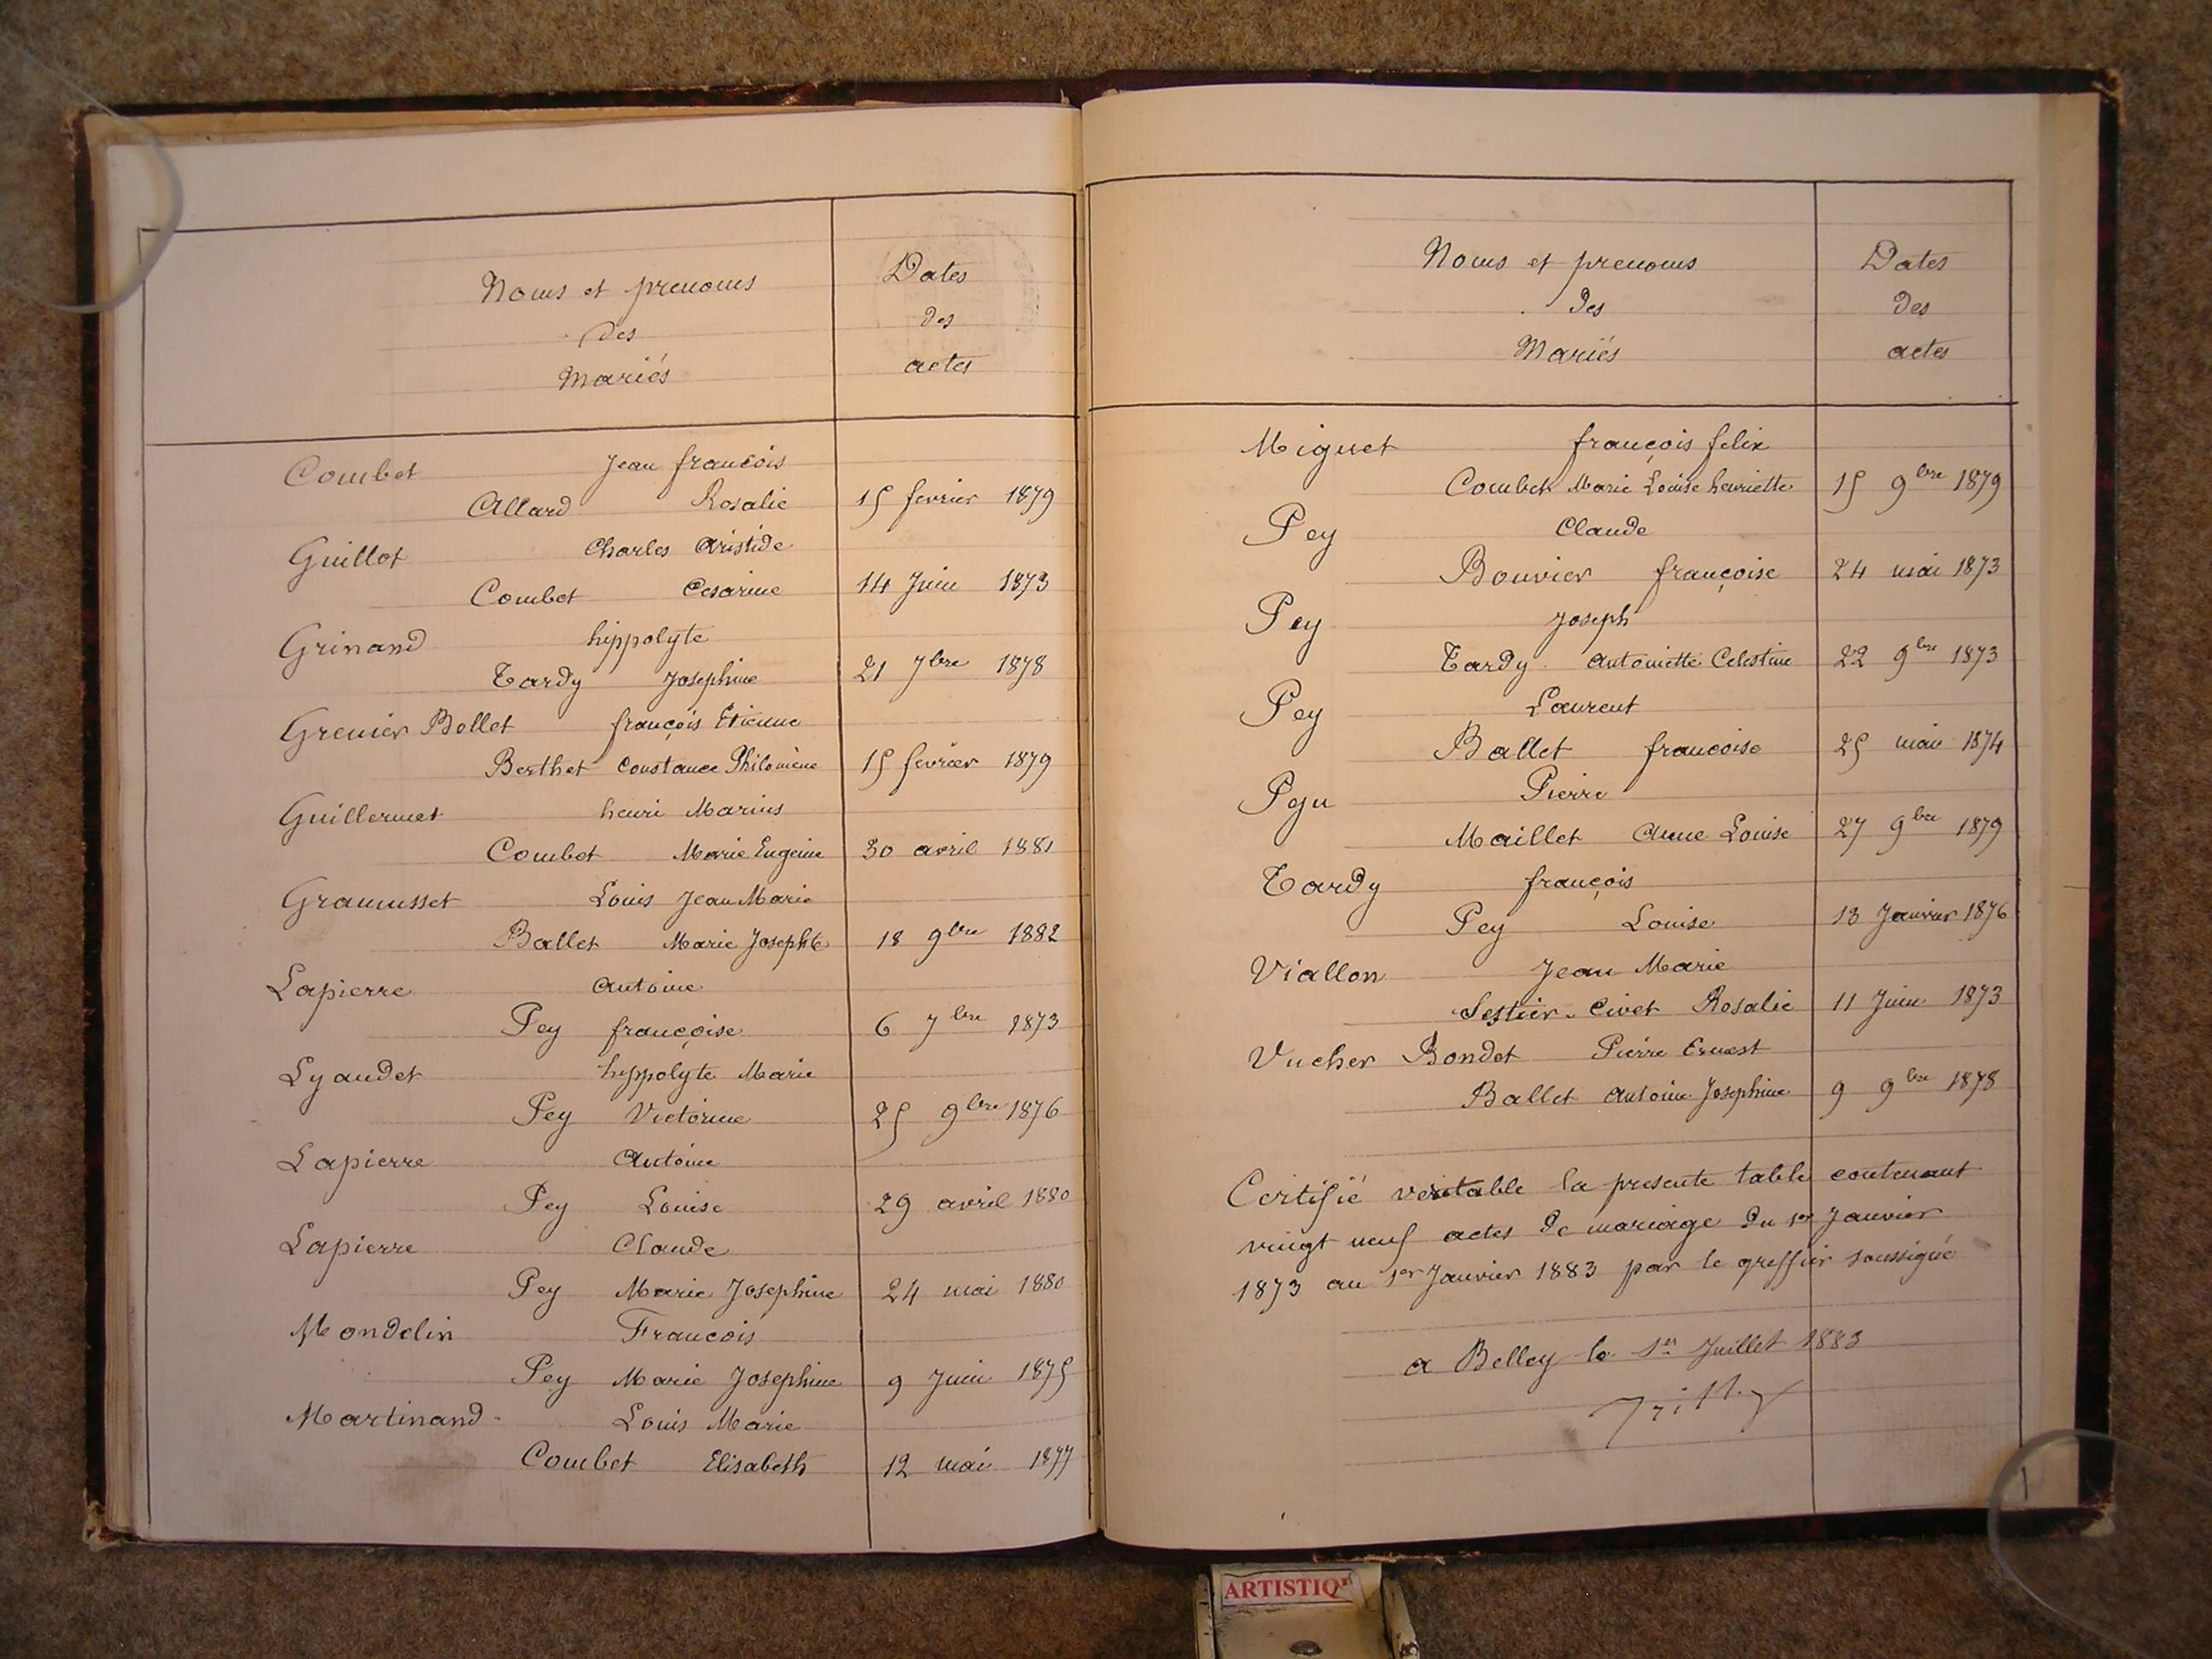 Noms et prenoms
des
Mariés
Dates
des
actes
Combet Jean françois
Allard Rosalie 15 fevrier 1879
Guillot Charles Aristide
Combet Cesarine 14 Juin 1873
Grinand hippolyte
Tardy Josephine 21 7bre 1878
Grenier Bollet françois Etienne
Berthet Constance Philomène 15 fevrier 1879
Guillermet henri Marius
Combet Marie Eugenie 30 avril 1881
Gramusset Louis Jean Marie
Ballet Marie Josephte 18 9bre 1882
Lapierre Antoine
Pey françoise 6 7bre 1873
Lyaudet hippolyte Marie
Pey Victorine 25 9bre 1876
Lapierre Antoine
Pey Louise 29 avril 1880
Lapierre Claude
Pey Marie Josephine 24 mai 1880
Mondelin François
Pey Marie Josephine 9 Juin 1875
Martinand Louis Marie
Combet Elisabeth 12 mai 1877
Noms et prenoms
des
Mariés
Dates
des
actes
Miguet françois felix
Combet Marie Louise henriette 15 9bre 1879
Pey Claude
Bouvier françoise 24 mai 1873
Pey Joseph
Tardy Antoinette Celestine 22 9bre 1873
Pey Laurent
Ballet francoise 25 mai 1874
Peju Pierre
Maillet Anne Louise 27 9bre 1879
Tardy françois
Pey Louise 13 Janvier 1876
Viallon Jean Marie
Sestier-Civet Rosalie 11 Juin 1873
Vucher Bondet Pierre Ernest
Ballet Antoine Josephine 9 9bre 1878
Certifié veritable la presente table contenant
vingt neuf actes de mariage du 1er Janvier
1873 au 1er Janvier 1883 par le greffier soussigné
a Belley le 1er Juillet 1883
ARTISTIQ